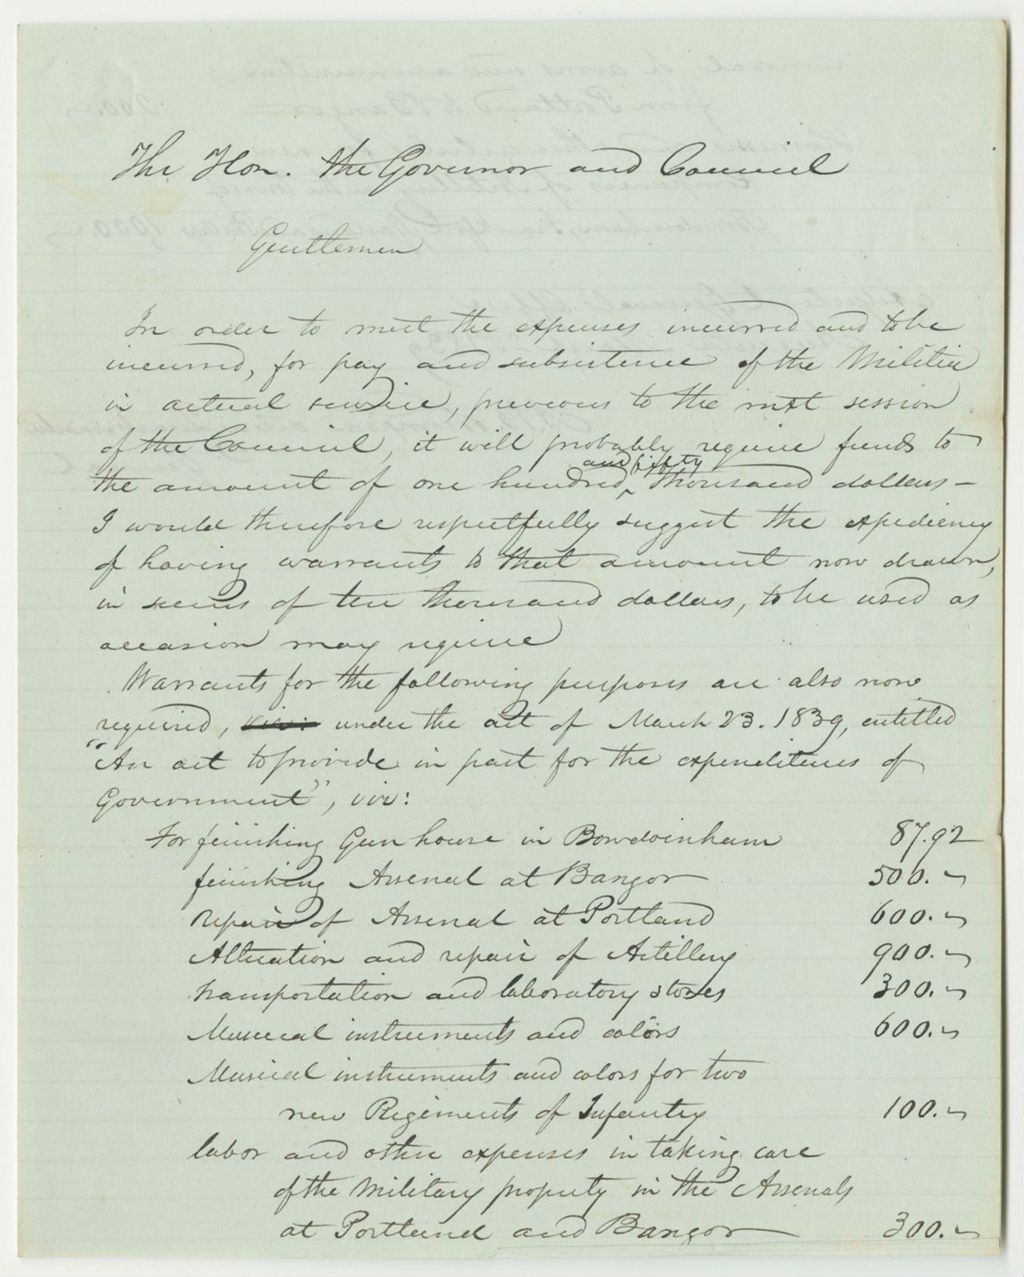 The Hon. the Governor and Council
Gentlemen
In order to meet the expenses incurred and to be
incurred, for pay and subsistence of the Militia
in actual service, previous to the next session
of the Council, it will probably require funds to
the amount of one hundred and fifty thousand dollars –
I would therefore respectfully suggest the expediency
of having warrants to that amount now drawn,
in sums of ten thousand dollars, to be used as
occasion may require
Warrants for the following purposes are also now
required, viz: under the act of March 23. 1839, entitled
"An act to provide in part for the expenditures of
Government", viz:
For finishing Gun house in Bowdoinham 87.92
finishing Arsenal at Bangor 500.
repair of Arsenal at Portland 600.
Alteration and repair of Artillery 900.
transportation and laboratory stores 300.
Musical instruments and colors 600.
Musical instruments and colors for two
new Regiments of Infantry 100.
labor and other expenses in taking care
of the Military property in the Arsenals
at Portland and Bangor 300.